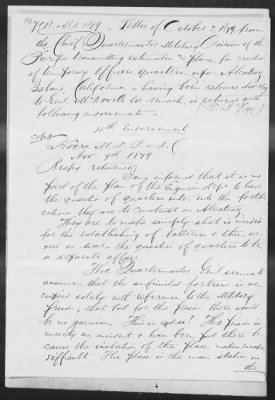 Letter of October 2, 1879, from
the Chief Quartermaster Military Division of the
Pacific transmitting estimates & plans, for erection
of temporary officers quarters, upon Alcatraz
Island, California, having been referred
to Genl McDowell for remark, is returned with
following endorsement.
4th Endorsement
copy
Nov 7th 1879.
Respy returned
I am informed that it is no
part of the plan of the Engineer Dept to have
the question of quarters enter into the fortifi-
cations they are to construct on Alcatraz.
They are to make simply what is needed
for the establishing of batteries & their use
in war the question of quarters to be
a separate affair.
The Quartermaster Genl seems to
assume that the unfinished fortress is oc-
cupied solely with reference to the Military
Prison, that but for the prison there would
be no garrison. This is not so. The prison is
merely an incident & has been put there be-
cause the isolation of the place makes escape
difficult. The place is the main station in
the